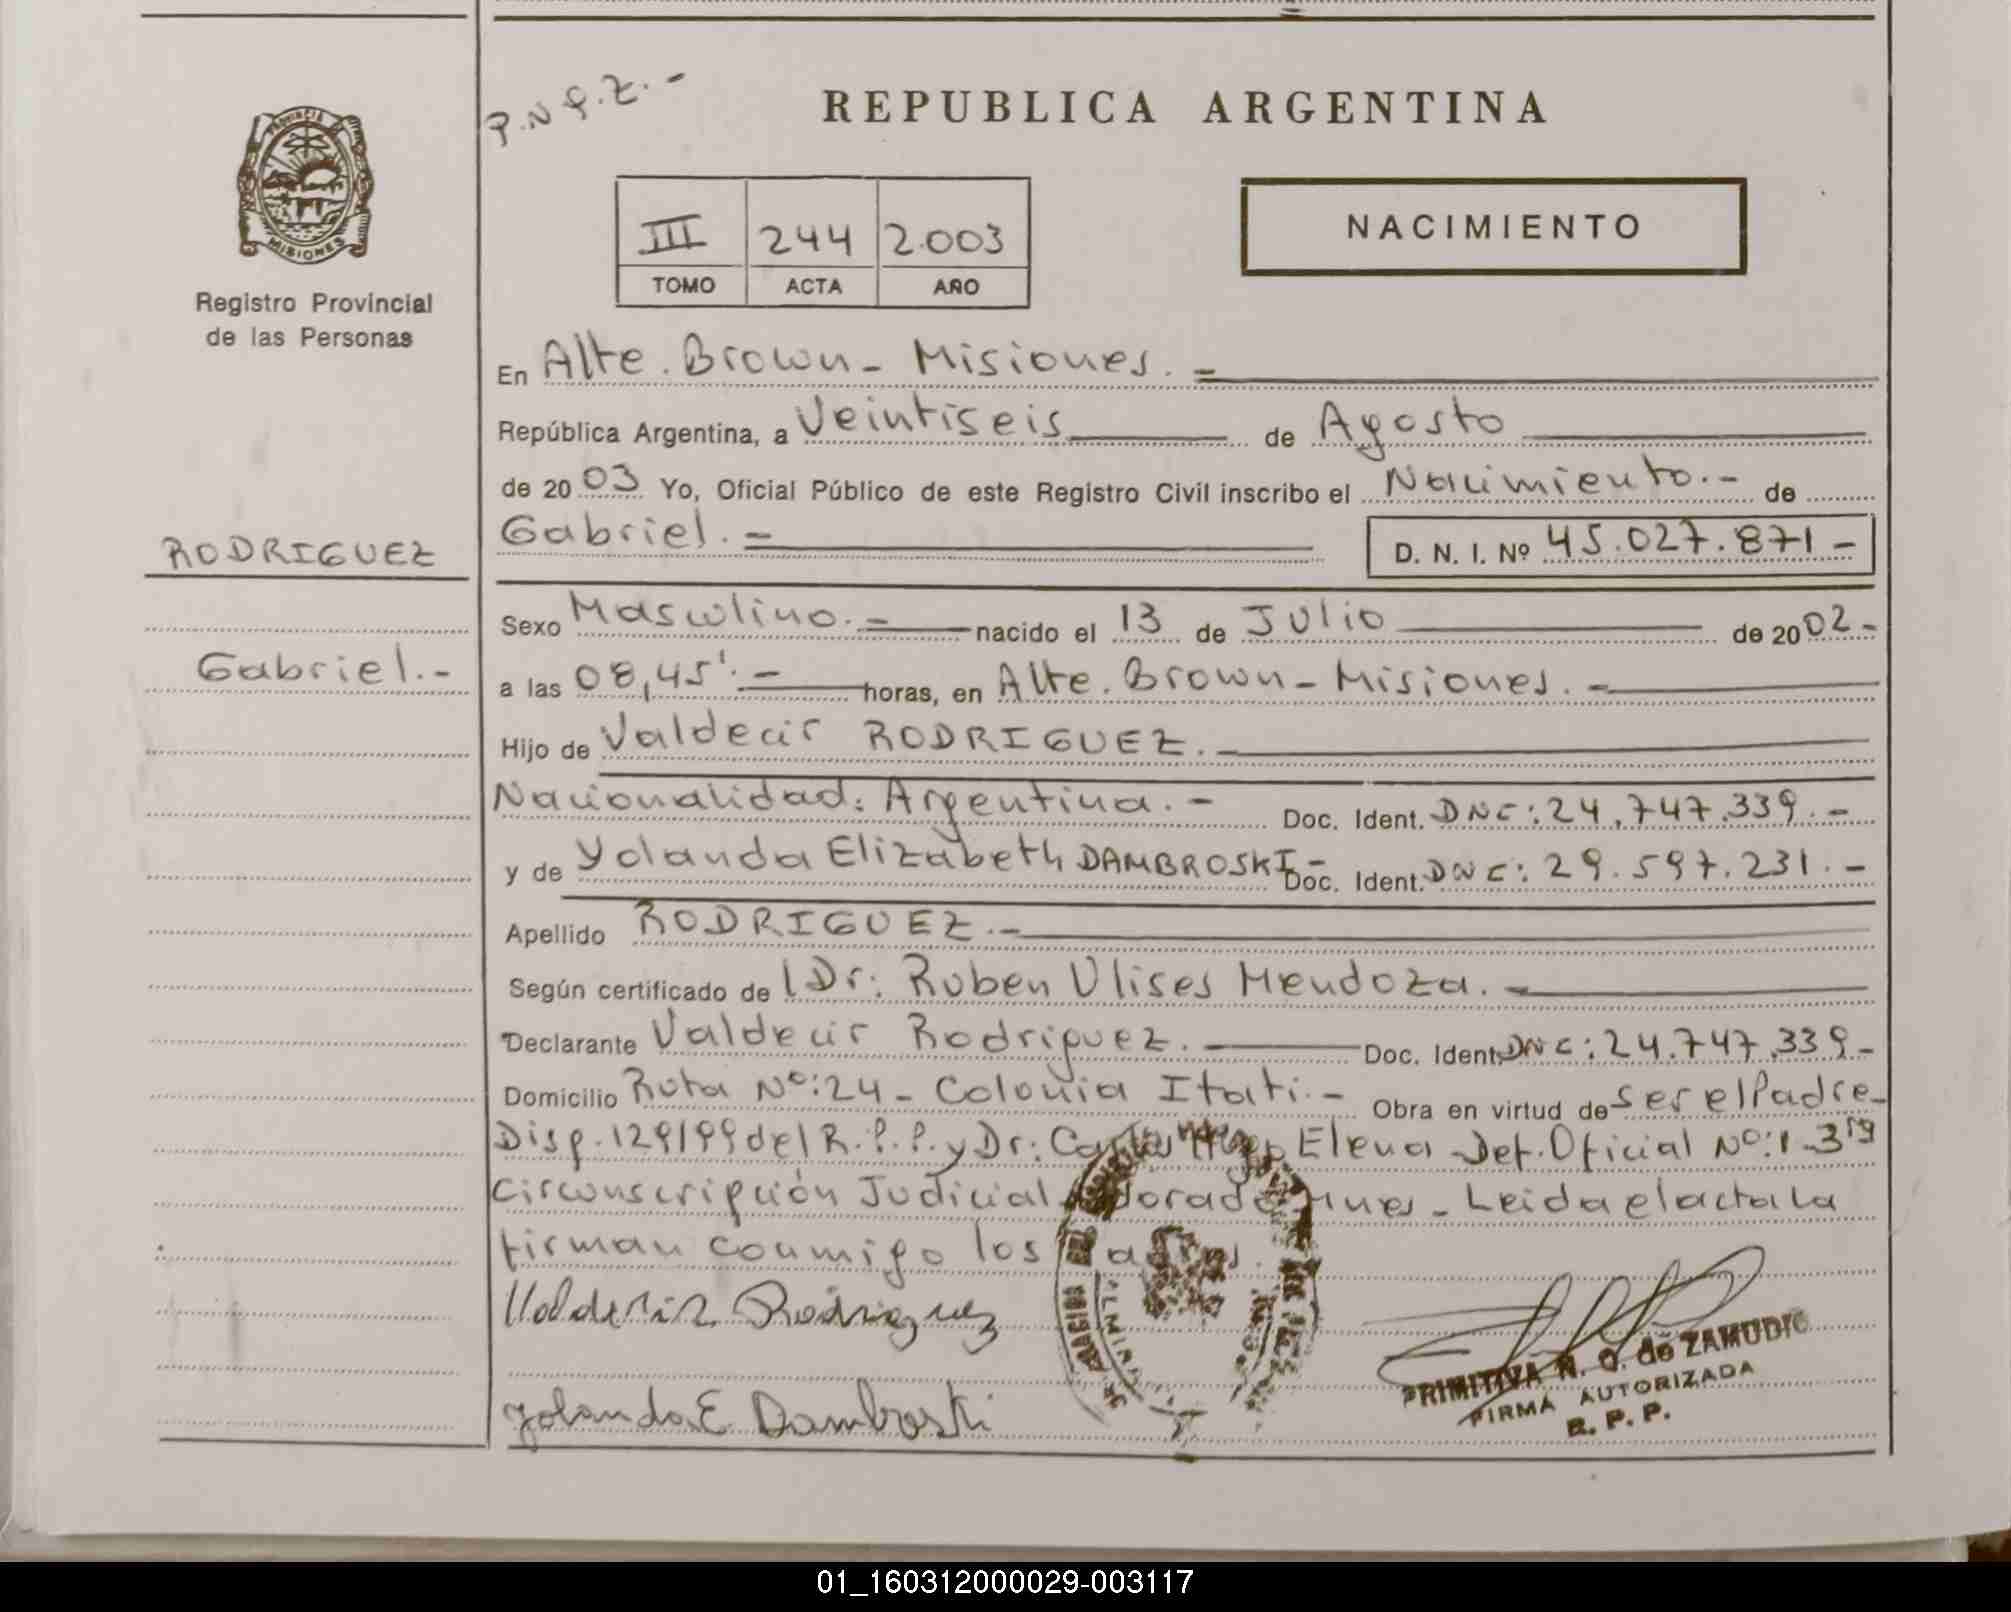 P.N.Q.Z.-
REPUBLICA ARGENTINA
PROVINCIA DE
MISIONES
Registro Provincial
de las Personas
III 244 2.003
TOMO ACTA AÑO
NACIMIENTO
En Alte. Brown - Misiones. -
República Argentina, a Veintiseis de Agosto
de 2003 Yo, Oficial Público de este Registro Civil inscribo el Nacimiento.- de
Gabriel. - D. N. I. Nº 45.027.871 -
RODRIGUEZ
Sexo Masculino. - nacido el 13 de Julio de 2002 -
Gabriel. -
a las 08,45'. - horas, en Alte. Brown - Misiones. -
Hijo de Valdecir RODRIGUEZ. -
Nacionalidad: Argentina. - Doc. Ident. DNC: 24.747.339. -
y de Yolanda Elizabeth DAMBROSKI - Doc. Ident. DNC: 29.597.231. -
Apellido RODRIGUEZ. -
Según certificado de l Dr: Ruben Ulises Mendoza. -
Declarante Valdecir Rodriguez. Doc. Ident. DNC: 24.747.339 -
Domicilio Ruta Nº: 24 - Colonia Itati. - Obra en virtud de ser el Padre -
Disp. 129/99 del R.P.P. y Dr: Hugo Elena Def. Oficial Nº: 1 - 3ra
Circunscripción Judicial Eldorado Mnes - Leida el acta la
firman conmigo los Padres.
Valdecir Rodriguez
Yolanda E Dambroski
PRIMITIVA N. O. de ZAMUDIO
FIRMA AUTORIZADA
R. P. P.
01_160312000029-003117